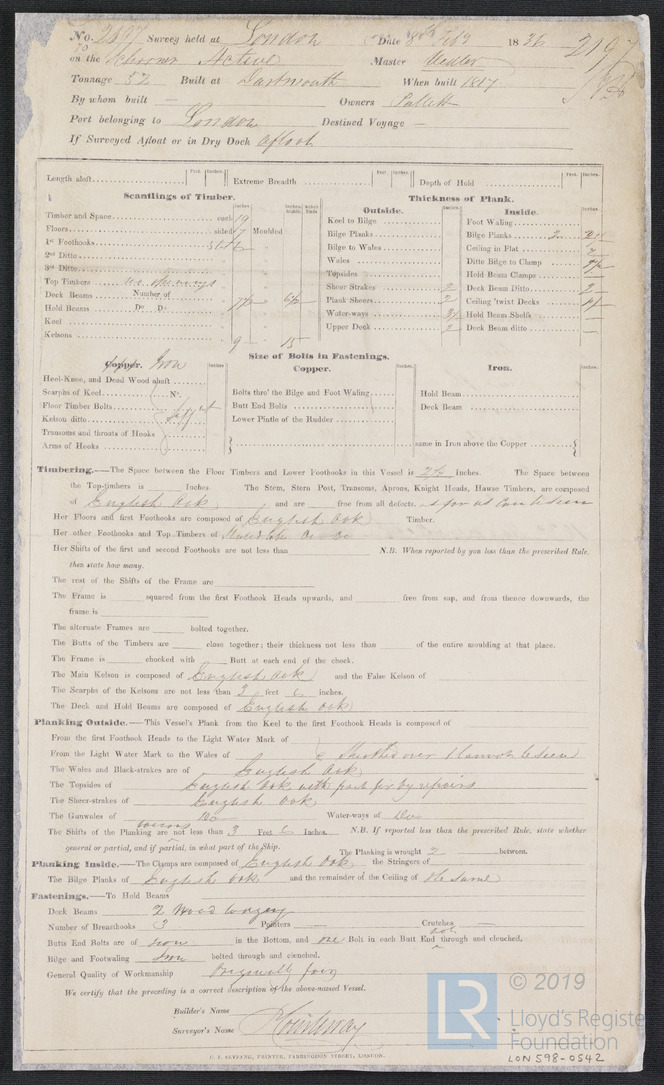 No. 2197 Survey held at London Date 18th Feb 1836 2197
on the Schooner Active Master Medler
Tonnage 52 Built at Dartmouth When built 1817
By whom built — Owners Pallett
Port belonging to London Destined Voyage —
If Surveyed Afloat or in Dry Dock afloat
Feet. Inches. Feet. Inches. Feet. Inches.
Length aloft Extreme Breadth Depth of Hold
Scantlings of Timber. Thickness of Plank.
Outside. Inside.
Timber and Space each 19
Floors sided 7 Moulded
1st Foothooks
2nd Ditto
3rd Ditto
Top Timbers no openings
Deck Beams Number of
Hold Beams Do Do
Keel
Kelsons 9 15
Keel to Bilge
Bilge Planks
Bilge to Wales
Wales
Topsides
Sheer Strakes 2
Plank Sheers 2
Water-ways
Upper Deck 2
Foot Waling
Bilge Planks
Ceiling in Flat
Ditto Bilge to Clamp
Hold Beam Clamps
Deck Beam Ditto
Ceiling 'twixt Decks
Hold Beam Shelfs
Deck Beam ditto
Size of Bolts in Fastenings.
Copper. Iron
Heel-Knee, and Dead Wood abaft
Scarphs of Keel No.
Floor Timber Bolts
Kelson ditto
Transoms and throats of Hooks
Arms of Hooks
Copper.
Bolts thro' the Bilge and Foot Waling
Butt End Bolts
Lower Pintle of the Rudder
Iron.
Hold Beam
Deck Beam
same in Iron above the Copper
Timbering.—The Space between the Floor Timbers and Lower Foothooks in this Vessel is 2½ Inches. The Space between
the Top-timbers is Inches. The Stem, Stern Post, Transoms, Aprons, Knight Heads, Hawse Timbers, are composed
of English Oak and are free from all defects.
Her Floors and first Foothooks are composed of English Oak Timber.
Her other Foothooks and Top Timbers of
Her Shifts of the first and second Foothooks are not less than N.B. When reported by you less than the prescribed Rule,
then state how many.
The rest of the Shifts of the Frame are
The Frame is squared from the first Foothook Heads upwards, and free from sap, and from thence downwards, the
frame is
The alternate Frames are bolted together.
The Butts of the Timbers are close together; their thickness not less than of the entire moulding at that place.
The Frame is chocked with Butt at each end of the chock.
The Main Kelson is composed of English Oak and the False Kelson of
The Scarphs of the Kelsons are not less than 3 feet 6 inches.
The Deck and Hold Beams are composed of English Oak
Planking Outside.—This Vessel's Plank from the Keel to the first Foothook Heads is composed of
From the first Foothook Heads to the Light Water Mark of
From the Light Water Mark to the Wales of Sheathed over & cannot be seen
The Wales and Black-strakes are of English Oak
The Topsides of English Oak with part fir by repairs
The Sheer-strakes of English Oak
The Gunwales of Do Water-ways of Do
The Shifts of the Planking are not less than 3 Feet 6 Inches. N.B. If reported less than the prescribed Rule, state whether
general or partial, and if partial, in what part of the Ship. The Planking is wrought 2 between.
Planking Inside.—The Clamps are composed of English Oak the Stringers of
The Bilge Planks of English Oak and the remainder of the Ceiling of the same
Fastenings.—To Hold Beams
Deck Beams 2 Wood Lodging
Number of Breasthooks 3 Pointers — Crutches —
Butts End Bolts are of Iron in the Bottom, and one Bolt in each Butt End through and clenched,
Bilge and Footwaling Iron bolted through and clenched.
General Quality of Workmanship Originally fair
We certify that the preceding is a correct description of the above-named Vessel.
Builder's Name
Surveyor's Name
C. F. SEYFANG, PRINTER, FARRINGDON STREET, LONDON.
LR
© 2019
Lloyd's Register
Foundation
LON 598-0542